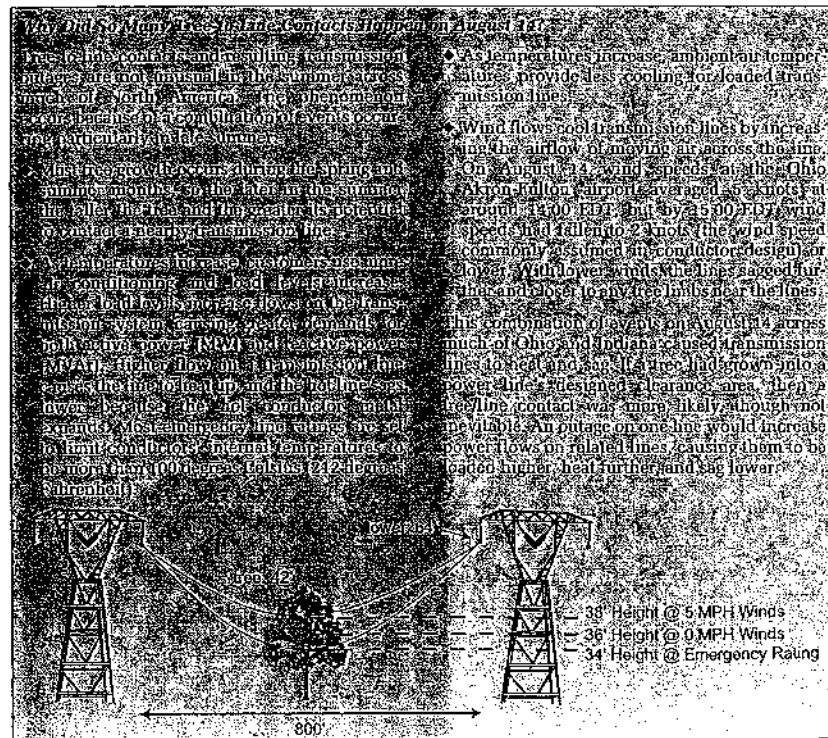 Why Did So Many Tree-to-Line Contacts Happen on August 14?
Tree-to-line contacts and resulting transmission
outages are not unusual in the summer across
much of North America. The phenomenon
occurs because of a combination of events occur-
ring particularly in late summer:
◆ Most tree growth occurs during the spring and
summer months, so the later in the summer
the taller the tree and the greater its potential
to contact a nearby transmission line.
◆ As temperatures increase, customers use more
air conditioning and load levels increase.
Higher load levels increase flows on the trans-
mission system, causing greater demands for
both active power (MW) and reactive power
(MVAr). Higher flow on a transmission line
causes the line to heat up, and the hot line sags
lower because the hot conductor metal
expands. Most emergency line ratings are set
to limit conductors' internal temperatures to
no more than 100 degrees Celsius (212 degrees
Fahrenheit).
◆ As temperatures increase, ambient air temper-
atures provide less cooling for loaded trans-
mission lines.
◆ Wind flows cool transmission lines by increas-
ing the airflow of moving air across the line.
On August 14 wind speeds at the Ohio
Akron-Fulton airport averaged 5 knots at
around 14:00 EDT, but by 15:00 EDT wind
speeds had fallen to 2 knots (the wind speed
commonly assumed in conductor design) or
lower. With lower winds, the lines sagged fur-
ther and closer to any tree limbs near the lines.
This combination of events on August 14 across
much of Ohio and Indiana caused transmission
lines to heat and sag. If a tree had grown into a
power line's designed clearance area, then a
tree/line contact was more likely, though not
inevitable. An outage on one line would increase
power flows on related lines, causing them to be
loaded higher, heat further, and sag lower.
Tower 64'
Tree 42'
38' Height @ 5 MPH Winds
36' Height @ 0 MPH Winds
34' Height @ Emergency Rating
800'